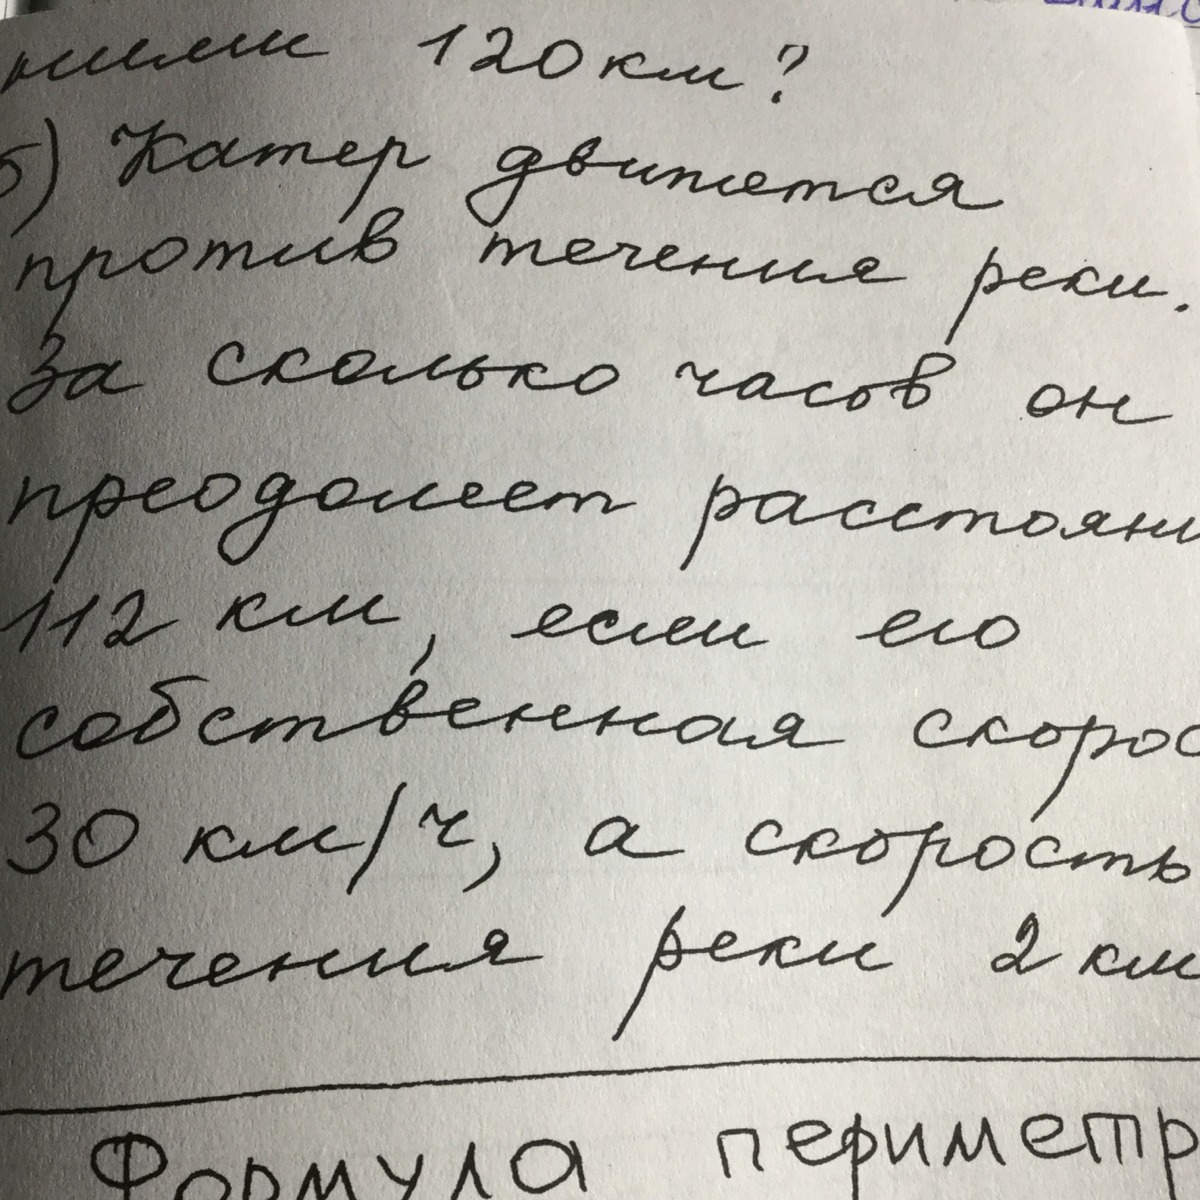 ними 120 км?
б) Катер движется
против течения реки.
За сколько часов он
преодолеет расстояни
112 км, если его
собственная скорос
30 км/ч, а скорость
течения реки 2 км
Формула периметр